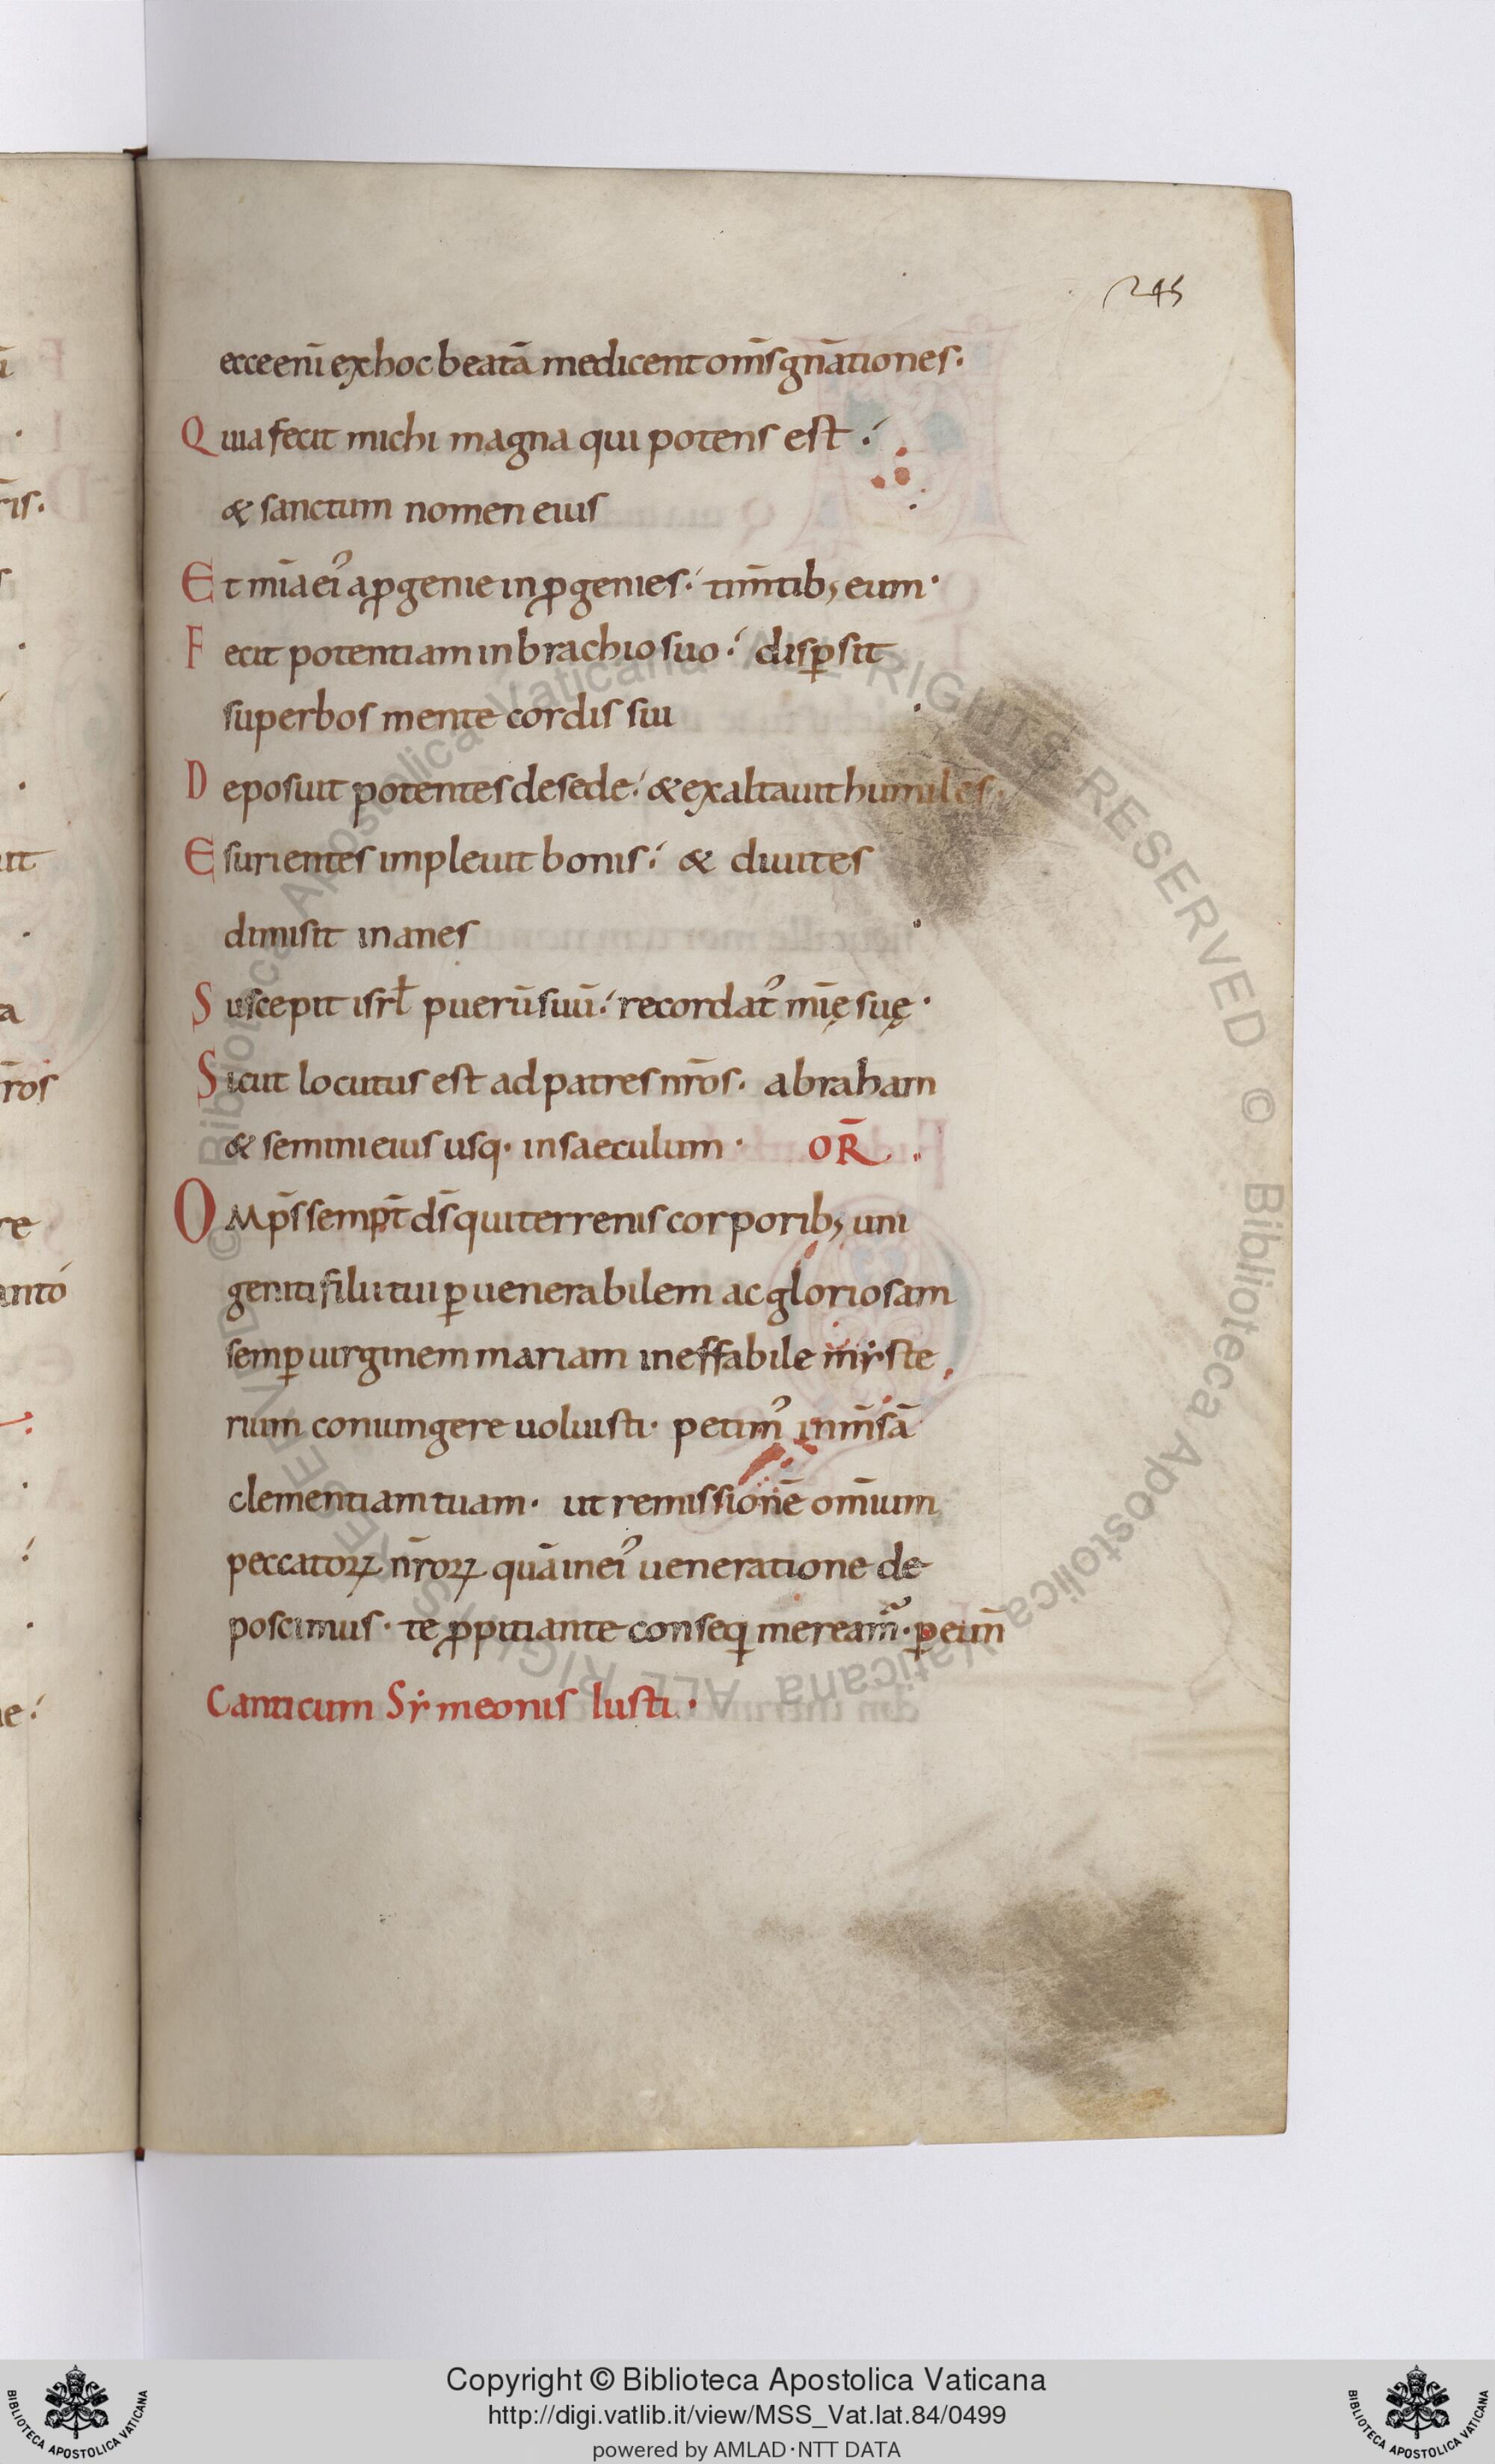 245
ecce enī ex hoc beatā me dicent om̄s gn̄ationes.
Quia fecit michi magna qui potens est.
& sanctum nomen eius.
Et mīa ei᾽ a ꝓgenie in ꝓgenies. tim̄tib; eum.
Fecit potentiam in brachio suo. disꝑsit
superbos mente cordis sui.
Deposuit potentes de sede. & exaltauit humiles.
Esurientes impleuit bonis. & diuites
dimisit inanes.
Suscepit isrł puerū suū. recordat᾽ mīę suę.
Sicut locutus est ad patres nr̄os. abraham
& semini eius usq. in saeculum. OR̄.
Omp̄s sempt̄ ds̄ qui terrenis corporib; uni
geniti filii tui ꝑ uenerabilem ac gloriosam
semꝑ uirginem mariam ineffabile mẏste
rium coniungere uoluisti. petim᾽ inm̄sā
clementiam tuam. ut remissionē om̄ium
peccatoꝝ nr̄oꝝ quā in ei᾽ ueneratione de
poscimus. te ꝓpitiante conseq̨ meream̃. ꝑ eun̄
Canticum Sẏmeonis Iusti.
Copyright © Biblioteca Apostolica Vaticana
http://digi.vatlib.it/view/MSS_Vat.lat.84/0499
powered by AMLAD·NTT DATA